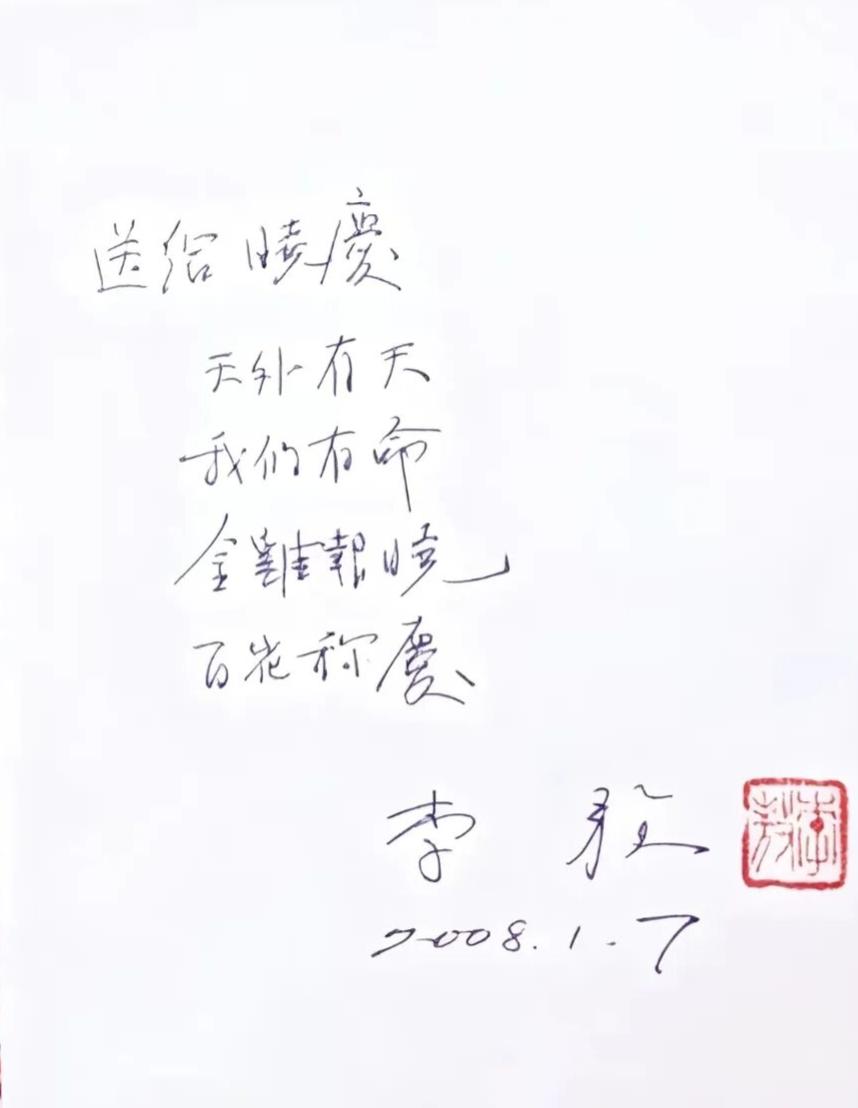 送给曉慶
天外有天
我们有命
金雞報曉
百花称慶
李敖
2008.1.7
李敖